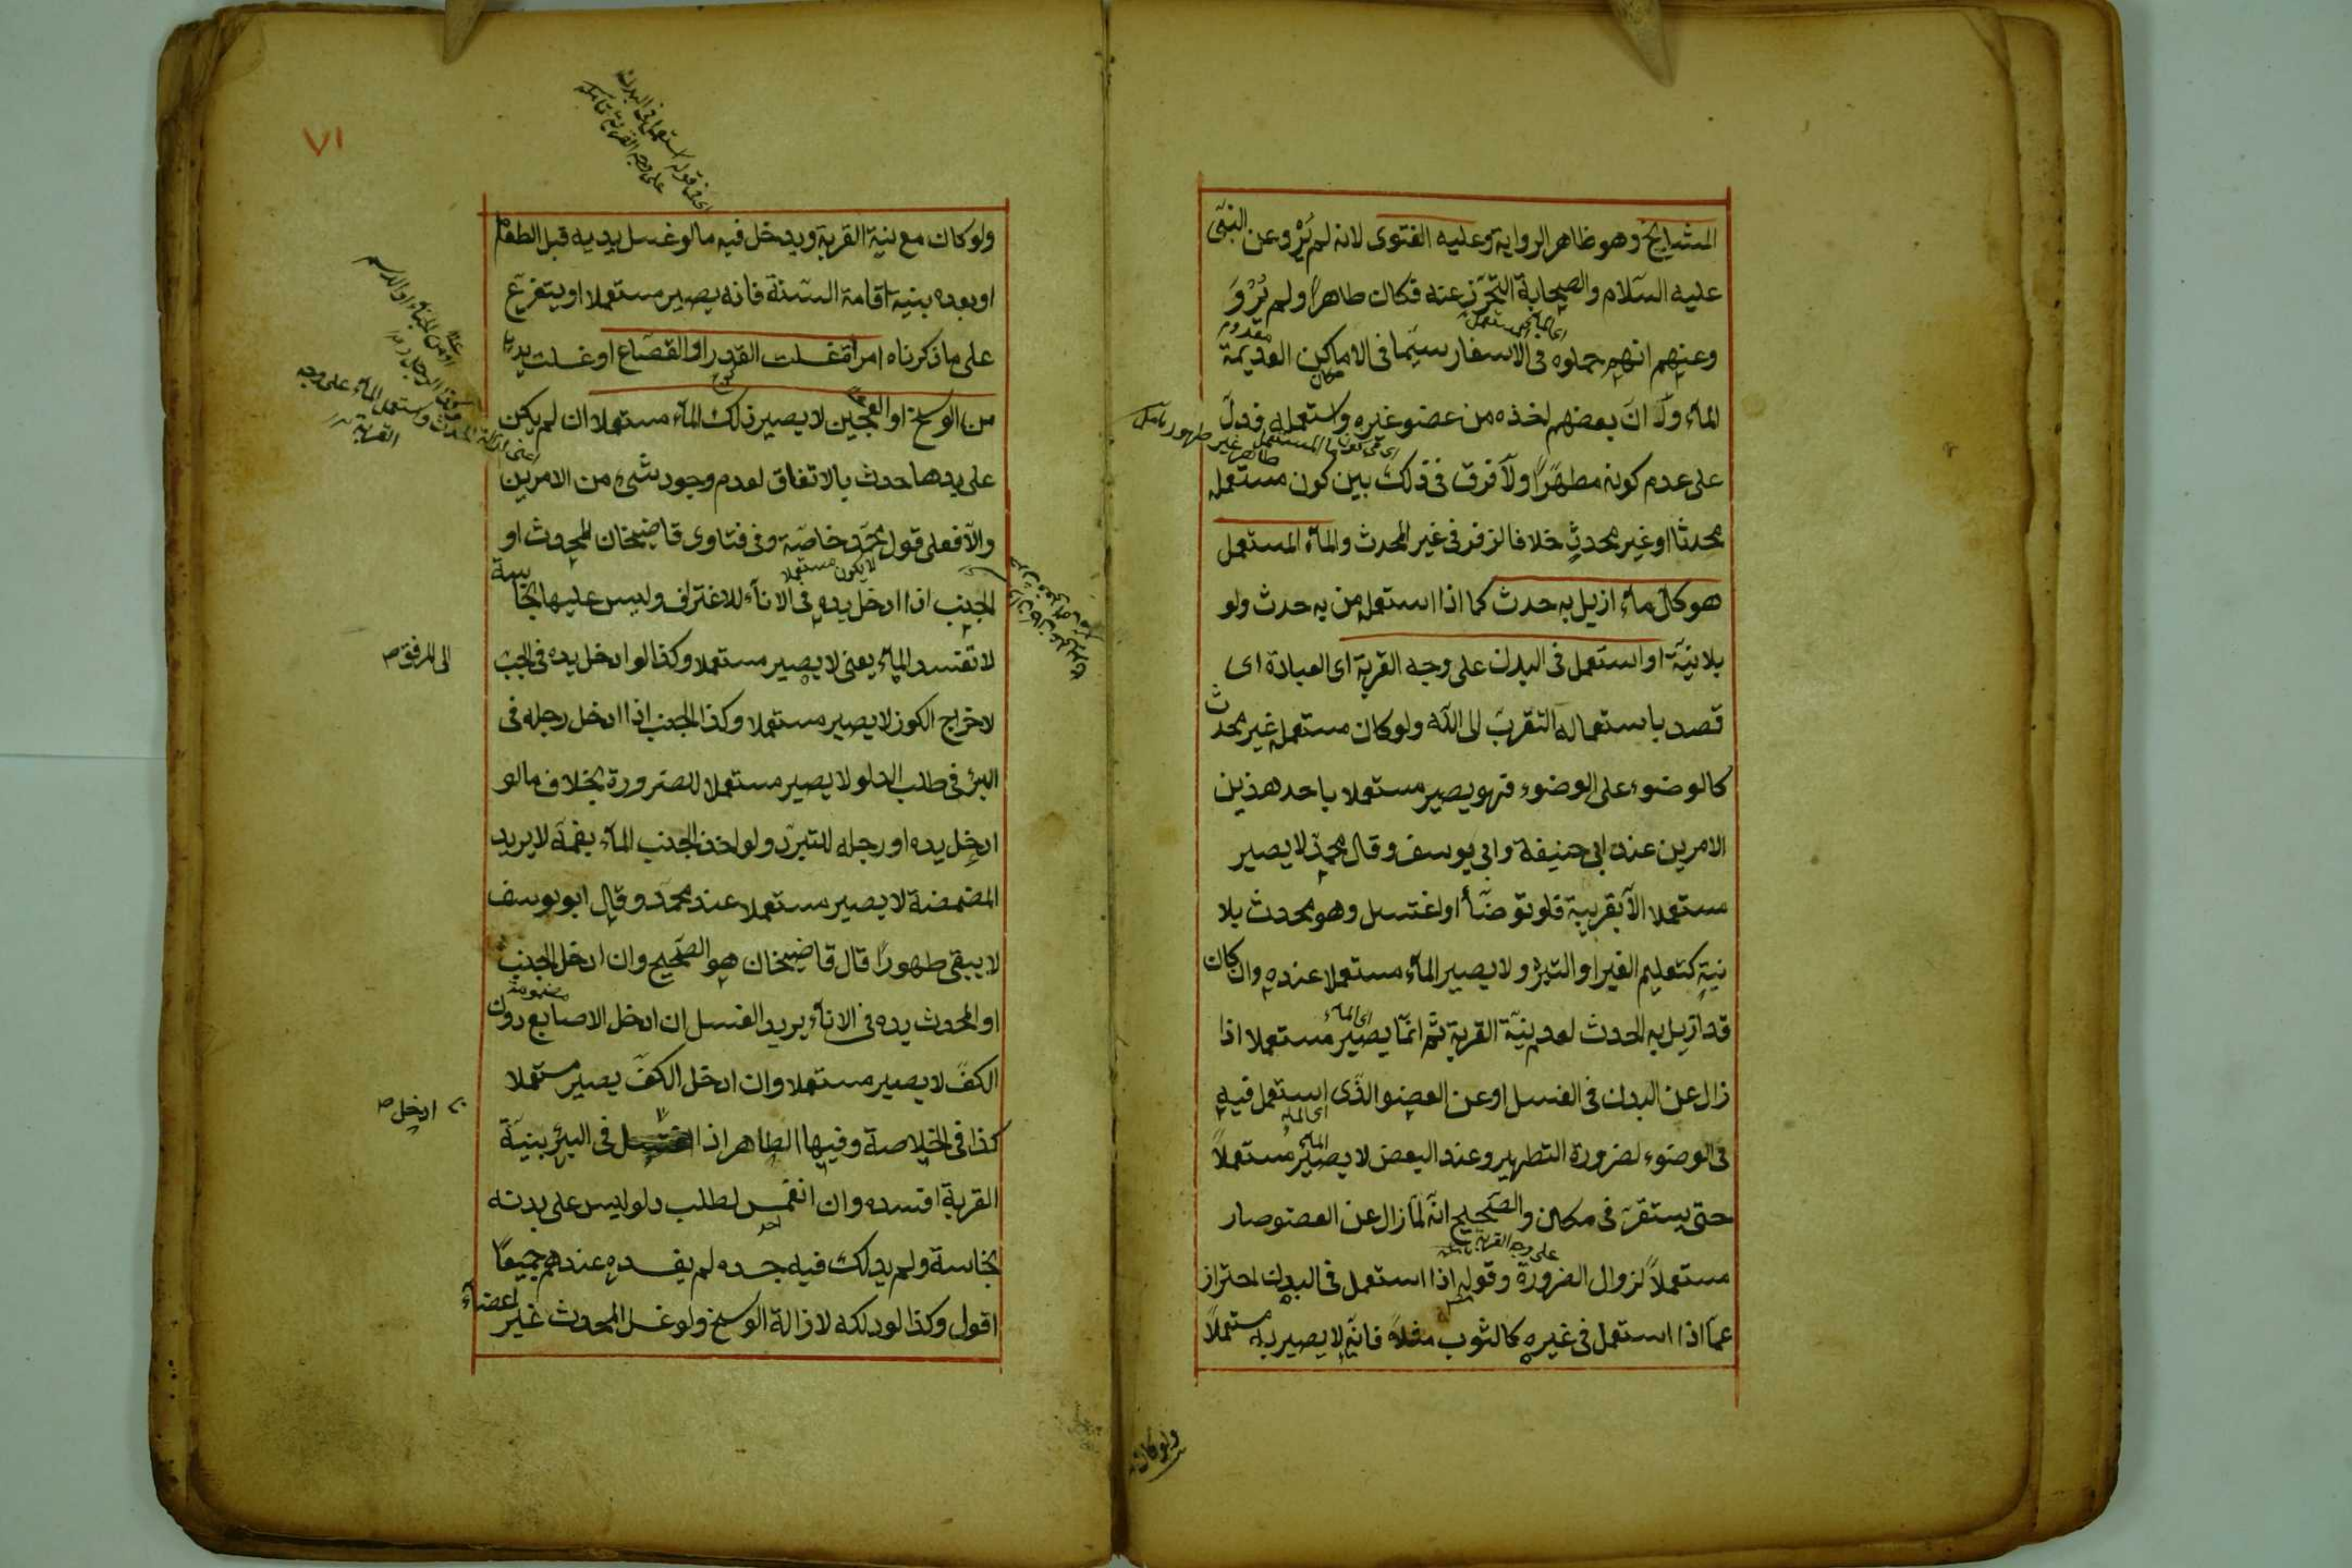 المشايخ وهو ظاهر الرواية وعليه الفتوى لانه لم يُرْو عن النبى
عليه السلام والصحابة التحرّز عنه فكان طاهرا ولم يُرْوَ
اى الماء المستعمل
معدوم
وعنهم انهم حملوه فى الاسفار سيّما فى الاماكن العديمة
الماء ولا انّ بعضهم اخذه من عضو غيره واستعمله فدلّ
على عدم كونه مطهّرًا ولا فرق فى ذلك بين كون مستعمله
محدثا او غير محدثٍ خلافا لزفر فى غير المحدث والماء المستعمل
هو كلّ ماء ازيل به حدث كما اذا استعمله من به حدث ولو
بلا نيّة او استعمل فى البدن على وجه القربة اى العبادة اى
قصد باستعماله التقرب الى الله ولو كان مستعمله غير محدث
كالوضوء على الوضوء فهو يصير مستعملا باحد هذين
الامرين عند ابى حنيفة وابى يوسف وقال محمد لا يصير
مستعملا الّا بقربة فلو توضّأ او اغتسل وهو محدث بلا
نيةٍ كتعليم الغير او التبرّد لا يصير الماء مستعملا عنده وان كان
قد ازيل به الحدث لعدم نيّة القربة ثم انّما يصير مستعملا اذا
اى الماء
زال عن البدن فى الغسل او عن العضو الّذى استعمل فيه
اى الماء
فى الوضوء لضرورة التطهير وعند البعض لا يصير مستعملاً
الماء
حتى يستقرّ فى مكان والصّحيح انّه لمّا زال عن العضو صار
على وجه القربة
مستعملاً لزوال الضرورة وقوله اذا استعمل فى البدن احتراز
عمّا اذا استعمل فى غيره كالثوب مثلا فانّه لا يصير به مستعملاً
ولو كان
٧١
اى فى قوله استعمل فى البدن
على وجه القربة
ولو كان مع نية القربة ويدخل فيه ما لو غسل يديه قبل الطعام
او بعده بنية اقامة السّنة فانه يصير مستعملا او يتفرّع
على ما ذكرناه امرأة غسلت القدر او القصاع او غسلت يديها
من الوسخ او العجين لا يصير ذلك الماء مستعملا ان لم يكن
على يدها حدث بالاتفاق لعدم وجود شىء من الامرين
والّا فعلى قول محمّد خاصّة وفى فتاوى قاضيخان المحدث او
لا يكون مستعملا
الجنب اذا ادخل يده فى الاناء للاغتراف وليس عليها نجاسة
لا تفسد الماء يعنى لا يصير مستعملا وكذا لو ادخل يده فى الجب
الى المرفق صح
لاخراج الكوز لا يصير مستعملا وكذا الجنب اذا ادخل رجله فى
البئر فى طلب الدلو لا يصير مستعملا للضرورة بخلاف ما لو
ادخل يده او رجله للتبرّد ولو اخذ الجنب الماء بفمه لا يريد
المضمضة لا يصير مستعملا عند محمّد وقال ابو يوسف
لا يبقى طهورًا قال قاضيخان هو الصّحيح وان ادخل الجنب
او المحدث يده فى الاناء يريد الغسل ان ادخل الاصابع دون
مضمومة
الكفّ لا يصير مستعملا وان ادخل الكفّ يصير مستعملا
كذا فى الخلاصة وفيها الطاهر اذا اغتسل فى البئر بنيّة
ادخل صح
القربة افسده وان انغمس لطلب دلو ليس على بدنه
نجاسة ولم يدلك فيه جسده لم يفسده عندهم جميعًا
اقول وكذا لو دلكه لازالة الوسخ ولو غسل المحدث غير اعضاء